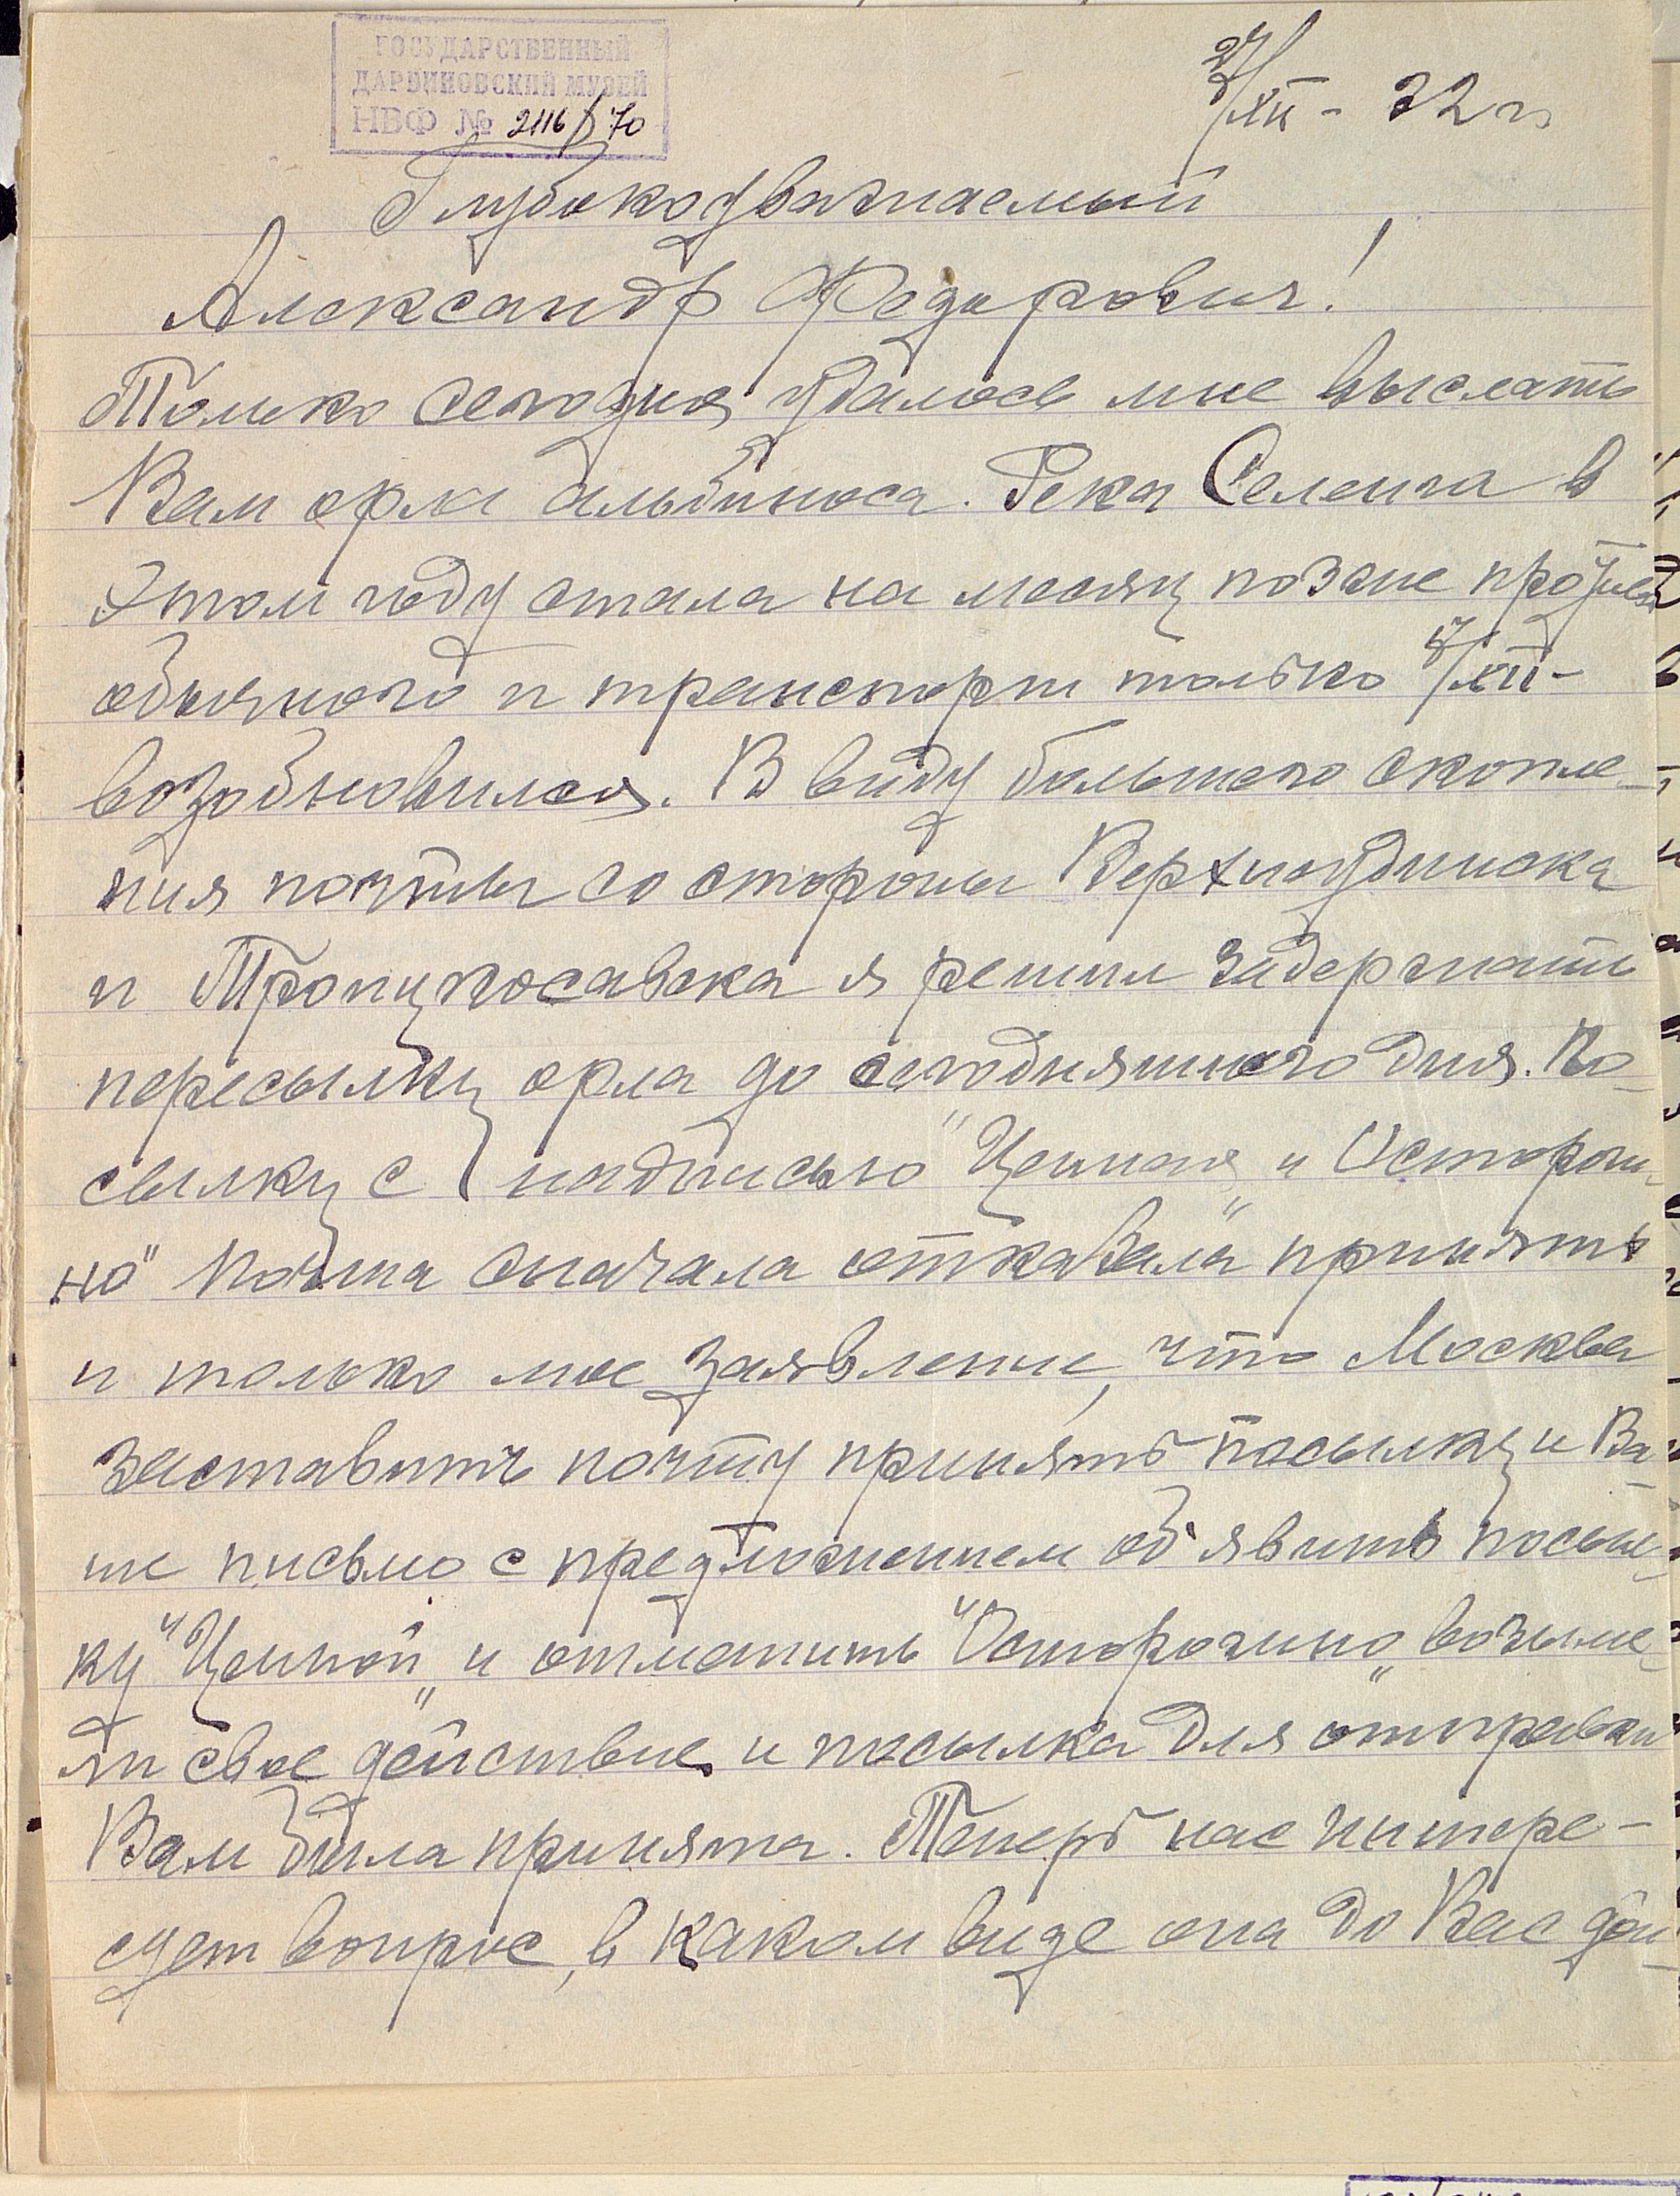 ГОСУДАРСТВЕННЫЙ
ДАРВИНОВСКИЙ МУЗЕЙ
НВФ № 2116/70
27/XII - 32 г
Глубокоуважаемый
Александр Федорович!
Только сегодня удалось мне выслать
Вам орла альбиноса. Река Селенга в
этом году стала на месяц позже против
обычного и транспорт только 7/XII -
возобновился. В виду большого скопле-
ния почты со стороны Верхнеудинска
и Троицкосавска я решил задержать
пересылку орла до сегодняшнего дня. По-
сылку с надписью "Ценная" и "Осторож-
но" почта сначала отказала принять
и только мое заявление, что Москва
заставит почту принять посылку и Ва-
ше письмо с предложением об'явить посыл-
ку "Ценной" и отметить "Осторожно" возыме-
ли свое действие и посылка для отправки
Вам была принята. Теперь нас интере-
сует вопрос, в каком виде она до Вас дой-